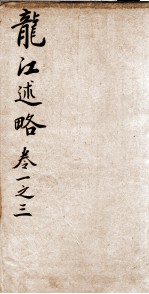 龍江述略 卷一之三